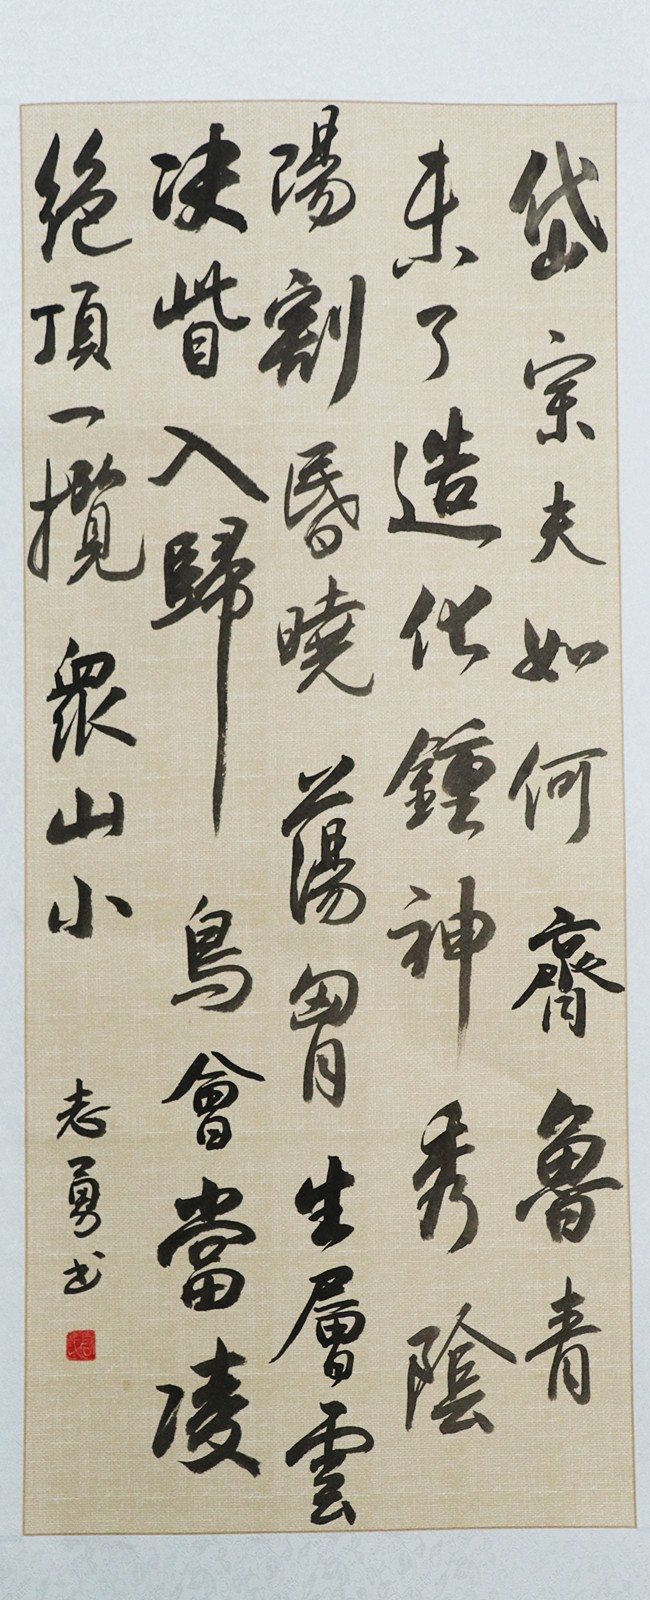 岱宗夫如何齊魯青
未了造化鍾神秀陰
陽割昏曉蕩胷生層雲
决眥入歸鳥會當凌
絶頂一攬衆山小
志勇书